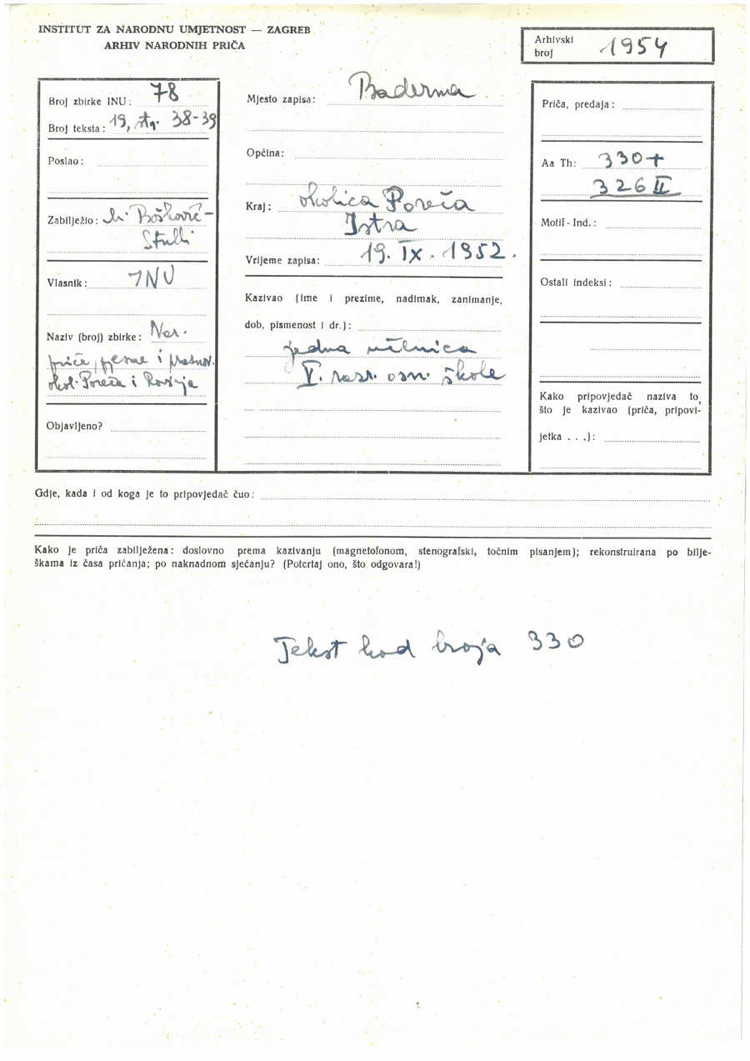 INSTITUT ZA NARODNU UMJETNOST — ZAGREB
ARHIV NARODNIH PRIČA
Arhivski
broj 1954
Broj zbirke INU: 78
Broj teksta: 19, str. 38-39
Poslao:
Zabilježio: M. Bošković-
Stulli
Vlasnik: INU
Naziv (broj) zbirke: Nar.
priče, pjesme i praznov.
okol. Poreča i Rovinja
Objavljeno?
Mjesto zapisa: Baderna
Općina:
Kraj: okolica Poreča
Istra
Vrijeme zapisa: 19. IX. 1952.
Kazivao (ime i prezime, nadimak, zanimanje,
dob, pismenost i dr.):
jedna učenica
V. razr. osn. škole
Priča, predaja:
Aa Th: 330+
326 II
Motif - Ind.:
Ostali indeksi:
Kako pripovjedač naziva to,
što je kazivao (priča, pripovi-
jetka . . .):
Gdje, kada i od koga je to pripovjedač čuo:
Kako je priča zabilježena: doslovno prema kazivanju (magnetofonom, stenografski, točnim pisanjem); rekonstruirana po bilje-
škama iz časa pričanja; po naknadnom sjećanju? (Potcrtaj ono, što odgovara!)
Tekst kod broja 330